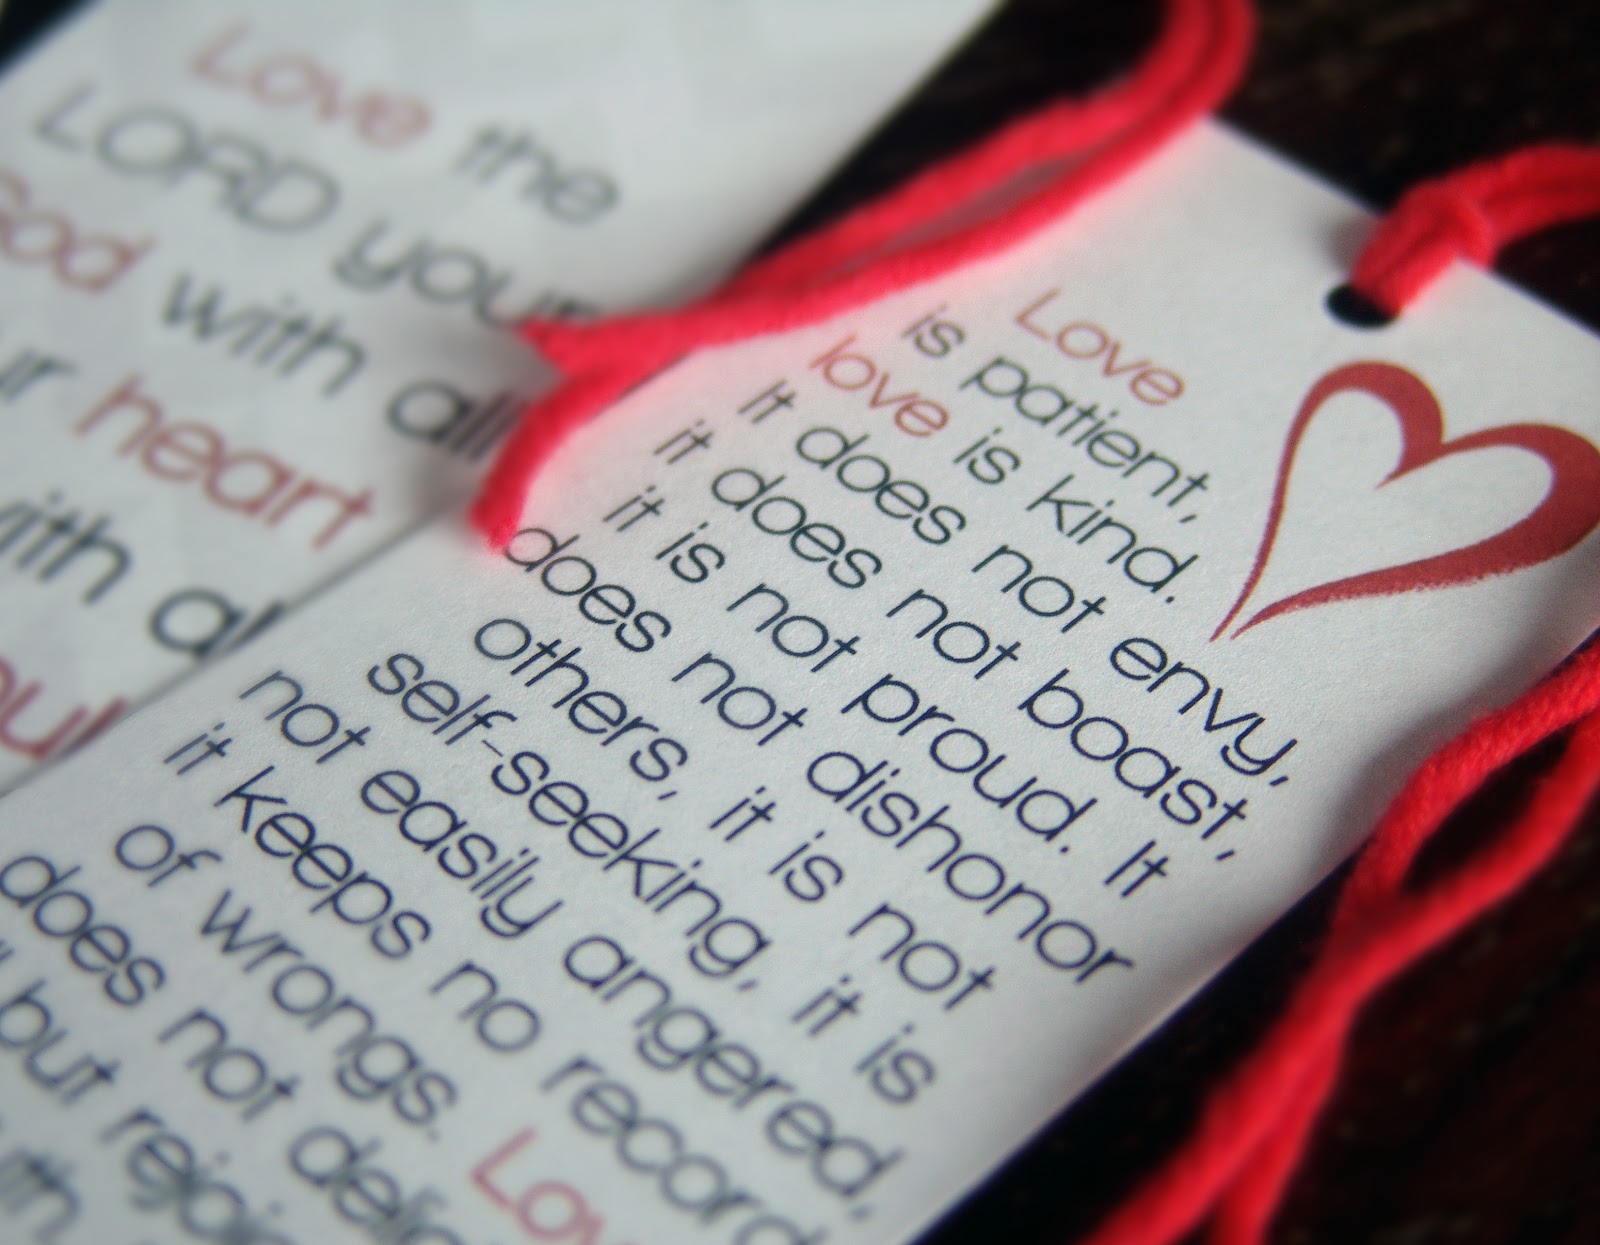 Love the
LORD your
God with all
ur heart
with al
oul
Love
is patient,
love is kind.
It does not envy,
it does not boast,
it is not proud. It
does not dishonor
others, it is not
self-seeking, it is
not easily angered,
it keeps no record
of wrongs. Lov
does not deli
but rejoic
uth